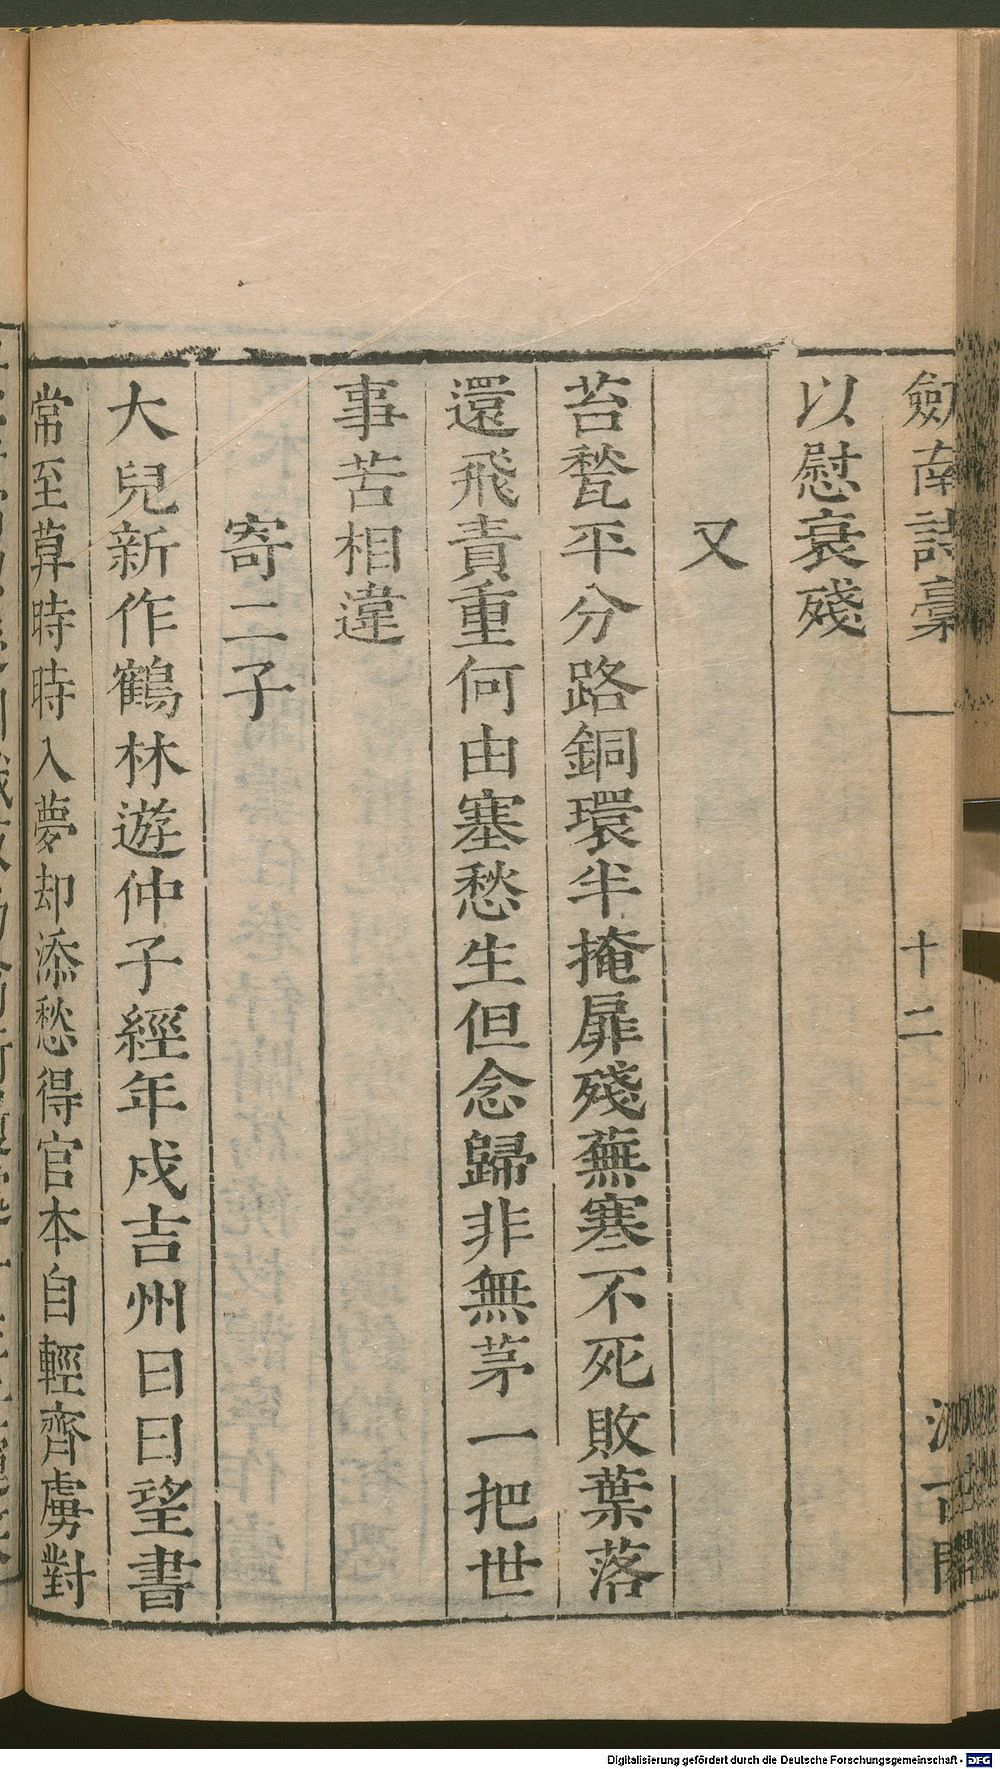 劒南詩稾 十二 汲古閣
以慰衰殘
又
苔甃平分路銅環半掩扉殘蕪寒不死敗葉落
還飛責重何由塞愁生但念歸非無茅一把世
事苦相違
寄二子
大兒新作鶴林遊仲子經年戍吉州日日望書
常至草時時入夢却添愁得官本自輕齊虜對
Digitalisierung gefördert durch die Deutsche Forschungsgemeinschaft - DFG